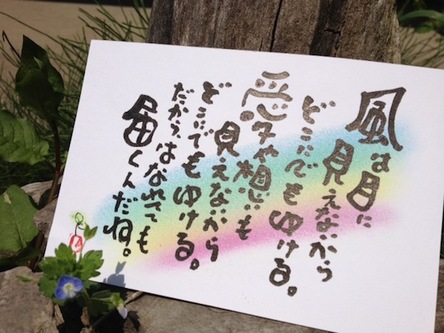 風は目に
見えないから
どこにでもゆける。
愛や想いも
見えないから
どこにでもゆける。
だからはなれても
届くんだね。